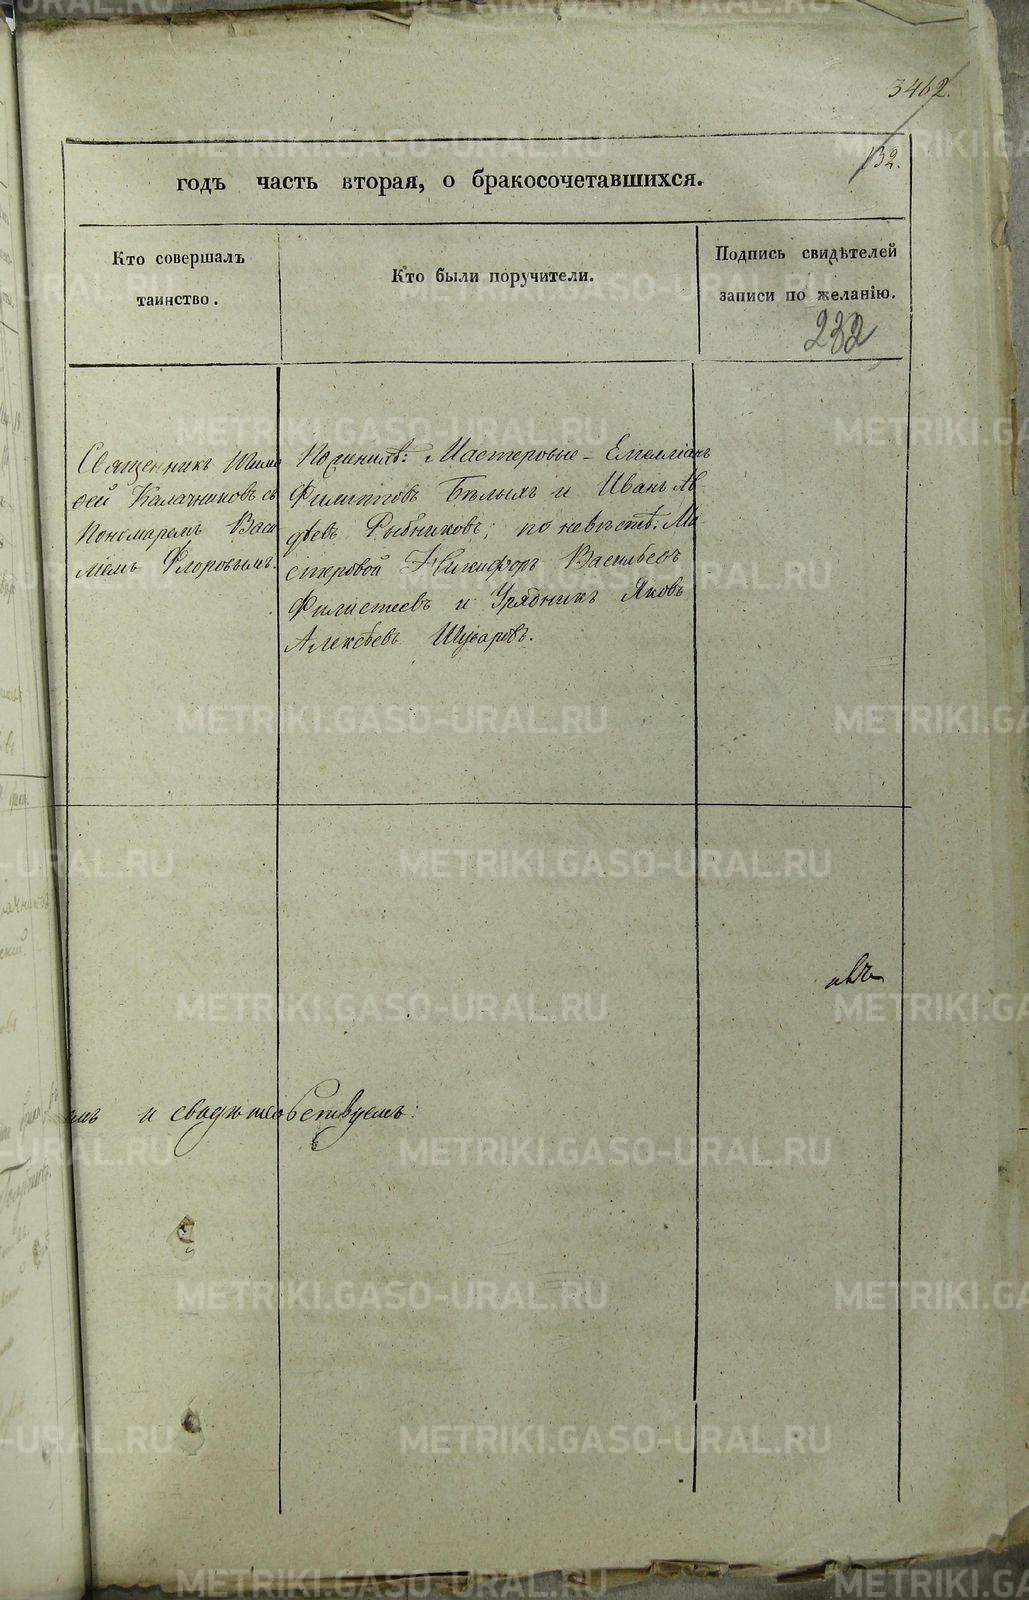 3462.
132.
годъ часть вторая, о бракосочетавшихся.
Кто совершалъ
таинство.
Кто были поручители.
Подпись свидѣтелей
записи по желанію.
232
Священникъ Тимо
ѳей Калачниковъ съ
Пономаремъ Васи
ліемъ Флоровымъ.
По женихѣ: Мастеровые - Емеліанъ
Филипповъ Бѣлыхъ и Иванъ
Рыбниковъ; по невѣстѣ: Ма
стеровой Никифоръ Васильевъ
и Урядникъ Яковъ
Алексѣевъ
овъ
емъ и свидѣтельствуемъ:
METRIKI.GASO-URAL.RU